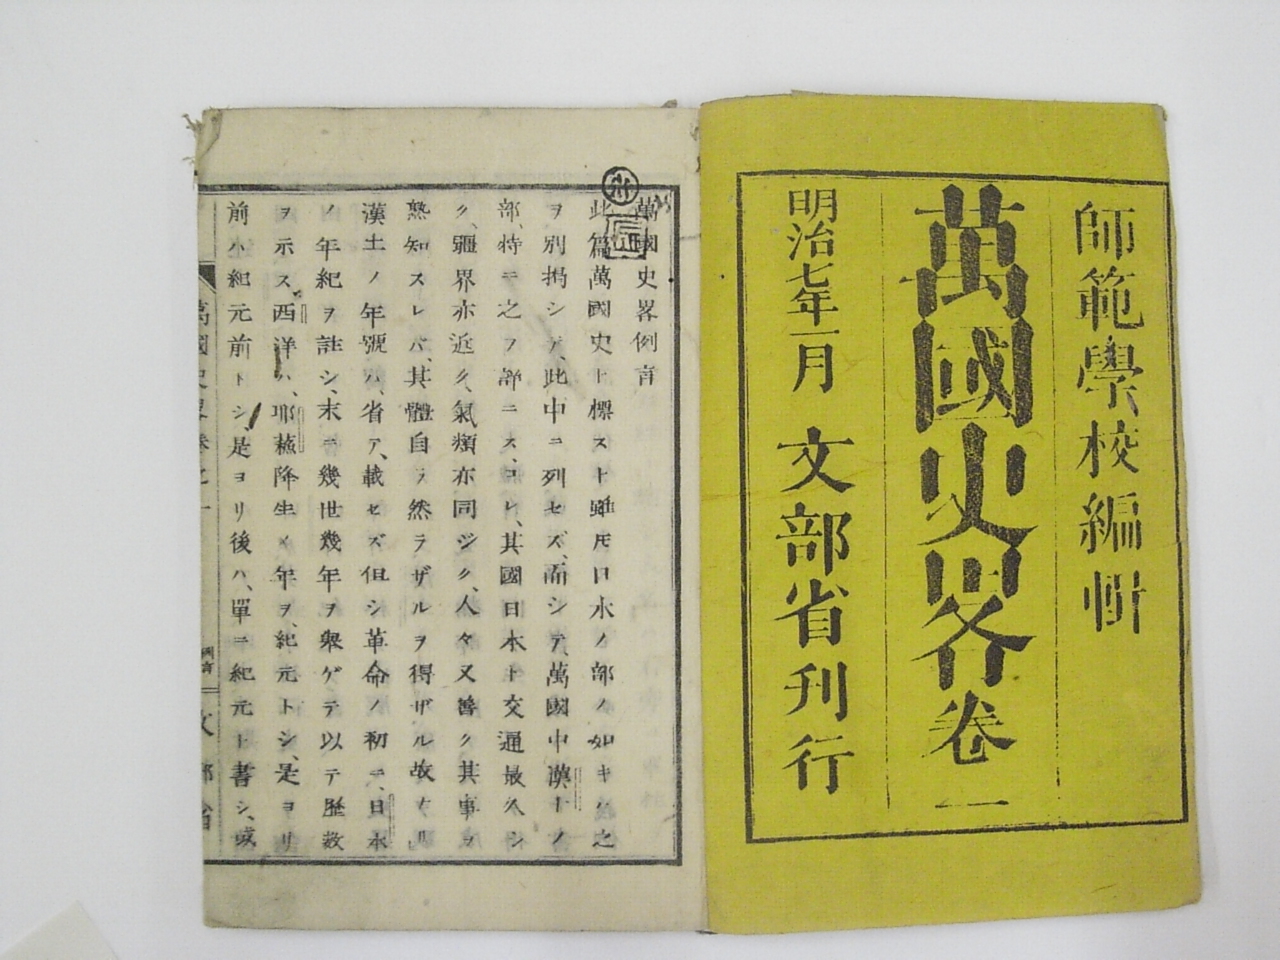 師範學校編輯
萬國史畧卷一
明治七年一月 文部省刊行
萬國史畧例言
此篇萬國史ト標スト雖𪜈日本ノ部ノ如キハ之
ヲ別揭シテ、此中ニ列セズ、而シテ萬國中漢土ノ
部、特ニ之ヲ詳ニス、コレ、其國日本ト交通最久シ
ク、疆界亦近ク、氣類亦同ジク、人々又善ク其事ヲ
熟知スレバ、其體自ラ然ラザルヲ得ザル故ナリ
漢土ノ年號ハ、省テ、載セズ但シ革命ノ初ニ、日本
ノ年紀ヲ註シ、末ニ幾世幾年ヲ舉ゲテ以テ歷数
ヲ示ス西洋ハ、耶蘇降生ノ年ヲ、紀元トシ、是ヨリ
前ヲ紀元前トシ是ヨリ後ハ、單ニ紀元ト書シ、或
萬國史畧卷之一
例言
一
文部省